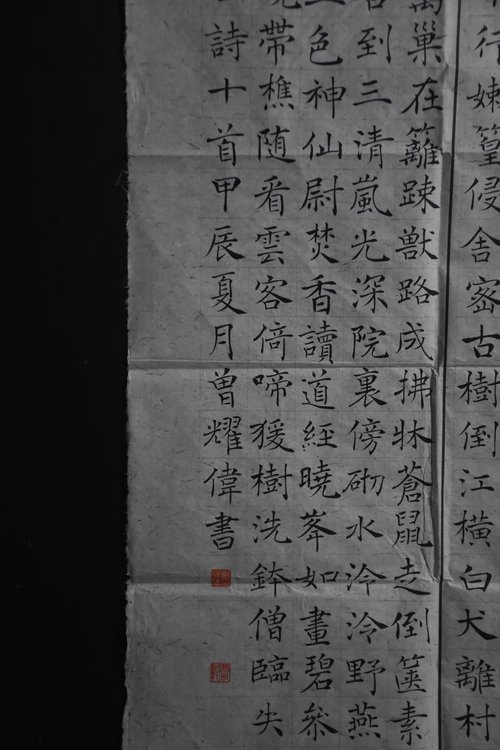 行踈篁侵舍密古樹倒江橫白犬離村
巢在籬踈獸路成拂牀蒼鼠走倒篋素
到三清嵐光深院裏傍砌水泠泠野燕
色神仙尉焚香讀道經曉峯如畫碧參
帶樵随看雲客倚啼猨樹洗鉢僧臨失
詩十首甲辰夏月曾耀偉書